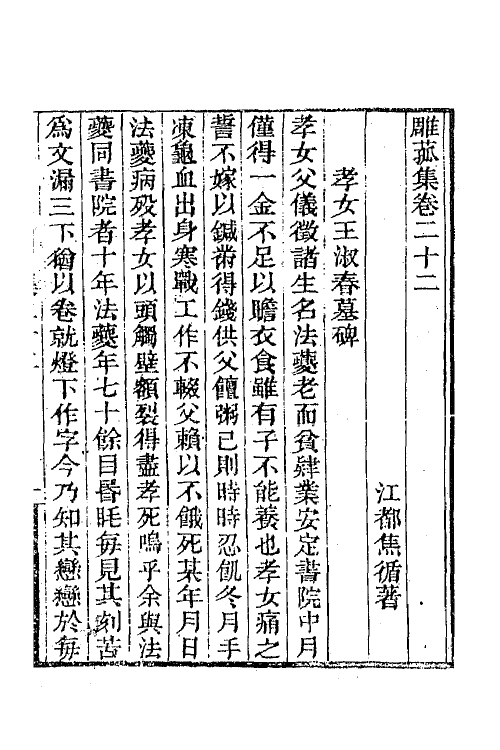 雕菰集卷二十二
江都焦循著
孝女王淑春墓碑
孝女父儀徵諸生名法夔老而貧肄業安定書院中月
僅得一金不足以贍衣食雖有子不能養也孝女痛之
誓不嫁以鍼黹得錢供父饘粥己則時時忍飢冬月手
凍龜血出身寒戰工作不輟父賴以不餓死某年月日
法夔病歿孝女以頭觸壁額裂得盡孝死嗚乎余與法
夔同書院者十年法夔年七十餘目昬眊每見其刻苦
爲文漏三下猶以卷就燈下作字今乃知其戀戀於每